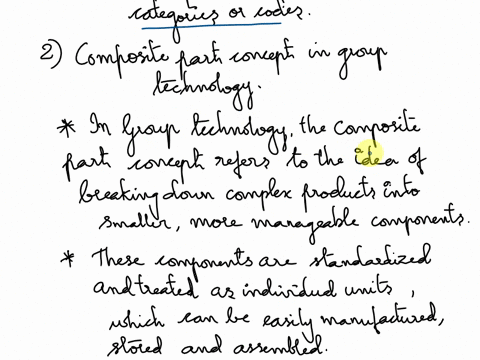 categories or codes.
2) Composite part concept in group
technology.
* In Group technology, the composite
part concept refers to the idea of
breaking down complex products into
smaller, more manageable components.
* These components are standardized
and treated as individual units,
which can be easily manufactured,
stored and assembled.